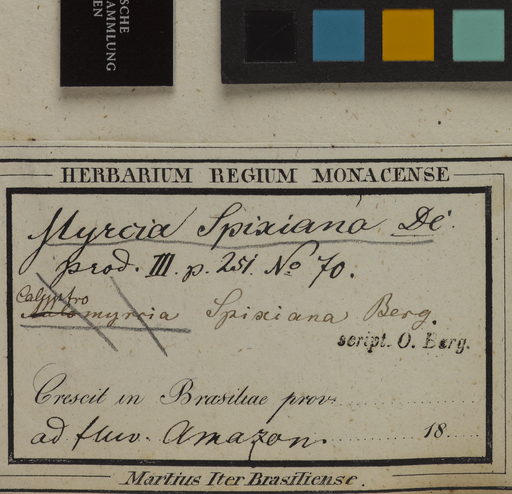 SCHE
AMMLUNG
EN
HERBARIUM REGIUM MONACENSE
Myrcia Spixiana DC.
prod. III. p. 251. No 70.
Calyptro
myrcia Spixiana Berg.
script. O. Berg.
Crescit in Brasiliae prov.
ad fluv. Amazon. 18
Martius Iter Brasiliense.